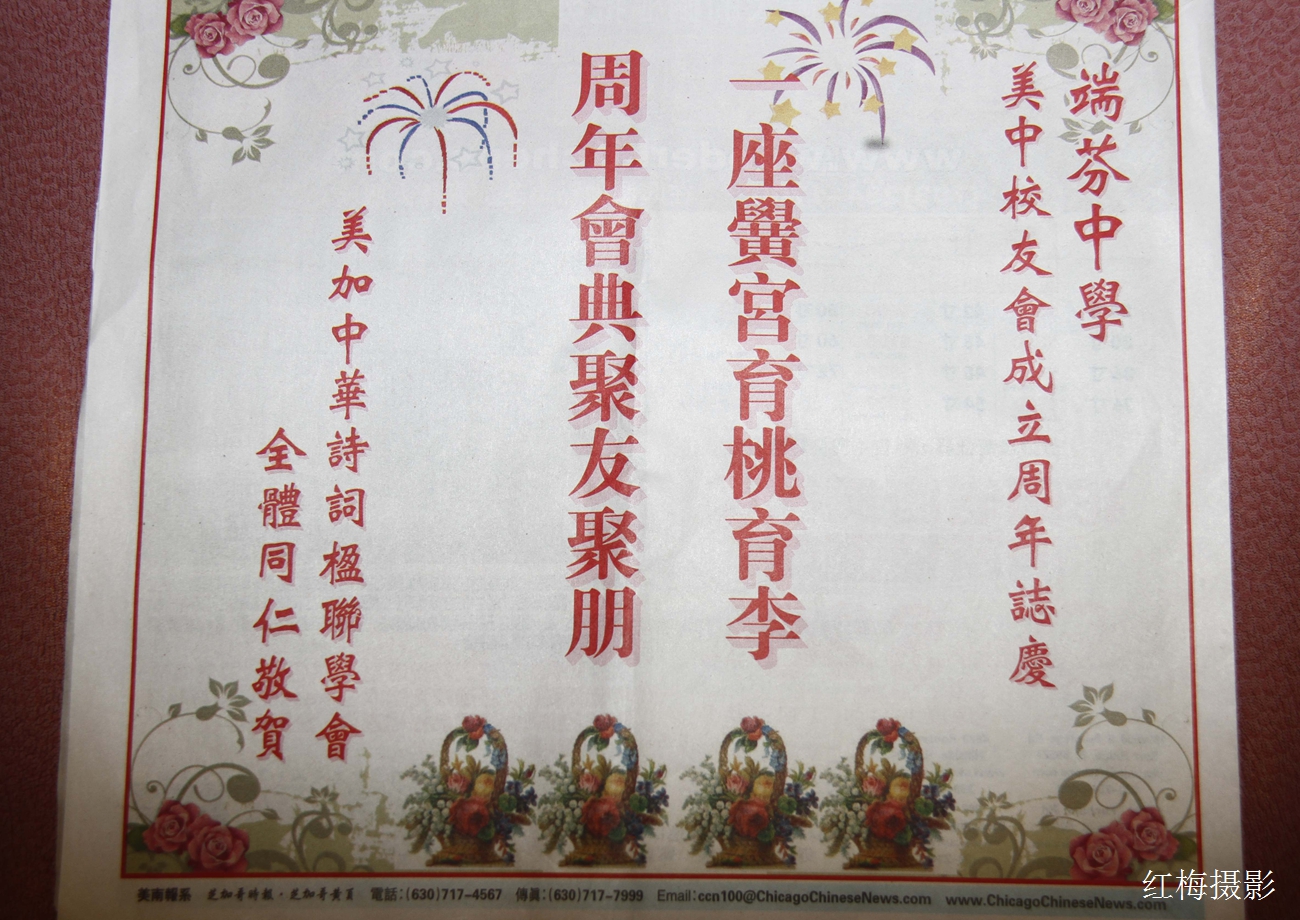 端芬中學
美中校友會成立周年誌慶
一座黌宮育桃育李
周年會典聚友聚朋
美加中華詩詞楹聯學會
全體同仁敬賀
美南報系 芝加哥時報·芝加哥黃頁 電話:(630)717-4567 傳真:(630)717-7999 Email:ccn100@ChicagoChineseNews.com www.ChicagoChineseNews.com
红梅摄影